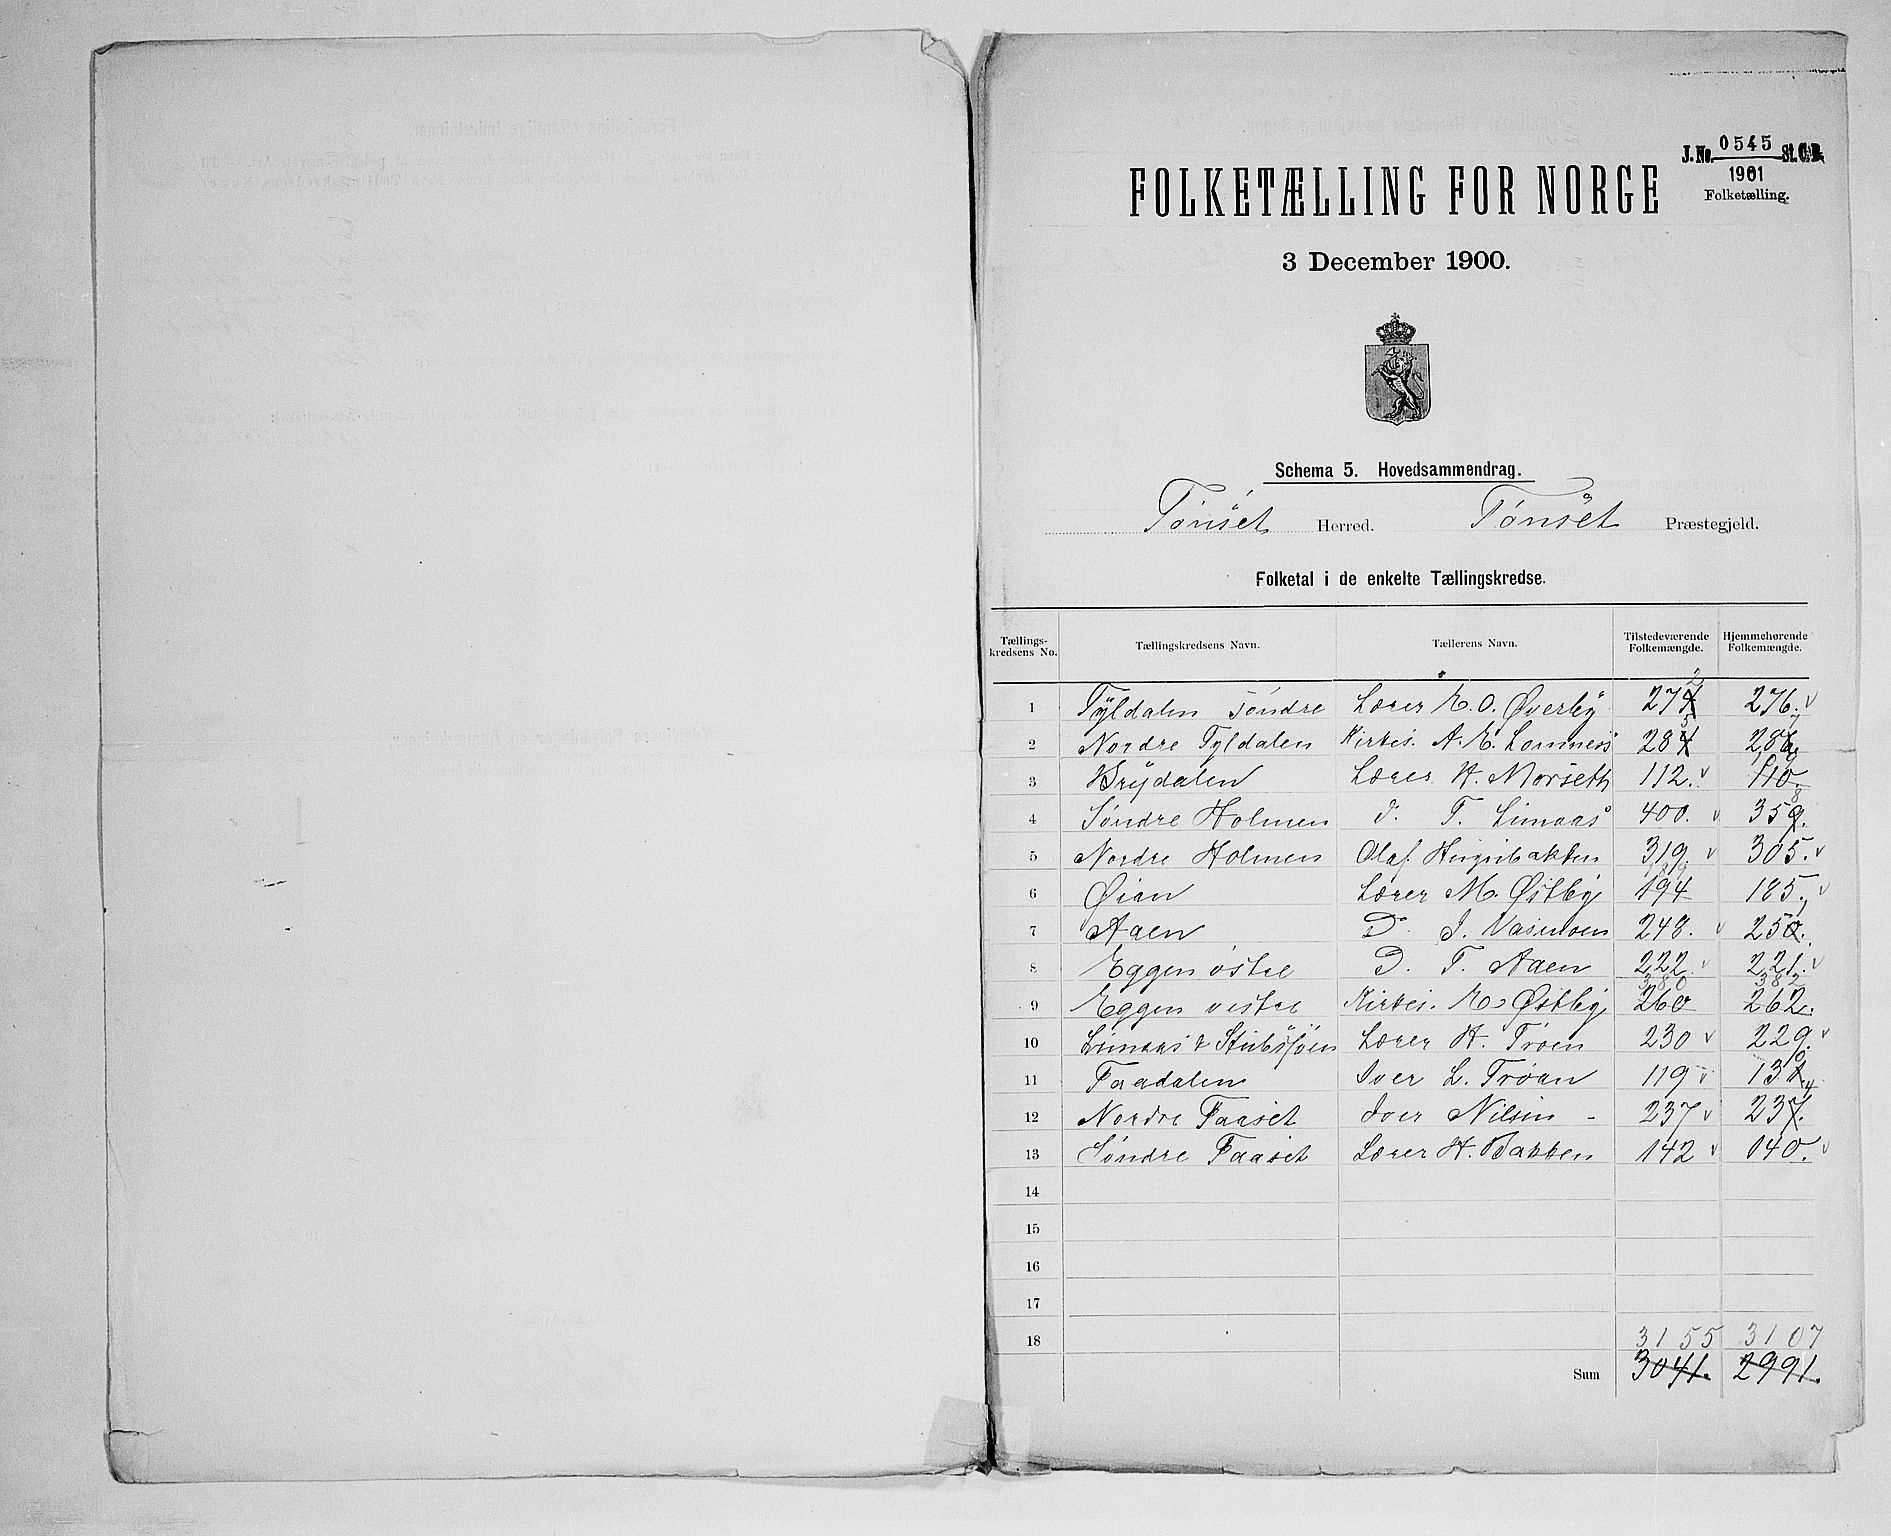 J. No. 0545 St. C. B.
1901
Folketælling.
FOLKETÆLLING FOR NORGE
3 December 1900.
Schema 5. Hovedsammendrag.
Tønset Herred. Tønset Præstegjeld.
Folketal i de enkelte Tællingskredse.
Tællings-kredsens No. Tællingskredsens Navn. Tællerens Navn. Tilstedeværende Folkemængde. Hjemmehørende Folkemængde.
1 Tyldalen søndre Lærer E. O. Øverby 272 276.
2 Nordre Tyldalen Kirkes. A. E. Lomness 285 287
3 Brydalen Lærer H. Morseth 112. 110.
4 Søndre Holmen d. T. Limaas 400. 358
5 Nordre Holmen Olaf 319. 305.
6 Øian Lærer M. Østby 194 185.
7 Aaen D. J. Vasmoen 248. 250.
8 Eggen østre D. T. Aaen 222. 221.
380 382
9 Eggen vestre Kirkes. E. Østby 260 262.
10 Limaas & Stubsjøen Lærer H. Trøen 230 229.
11 Faadalen Iver L. Trøan 119 130
12 Nordre Faaset Iver Nilsen - 237 234
13 Søndre Faaset Lærer H. Bakken 142 140.
14
15
16
17
18 3155 3107
Sum 3041. 2991.